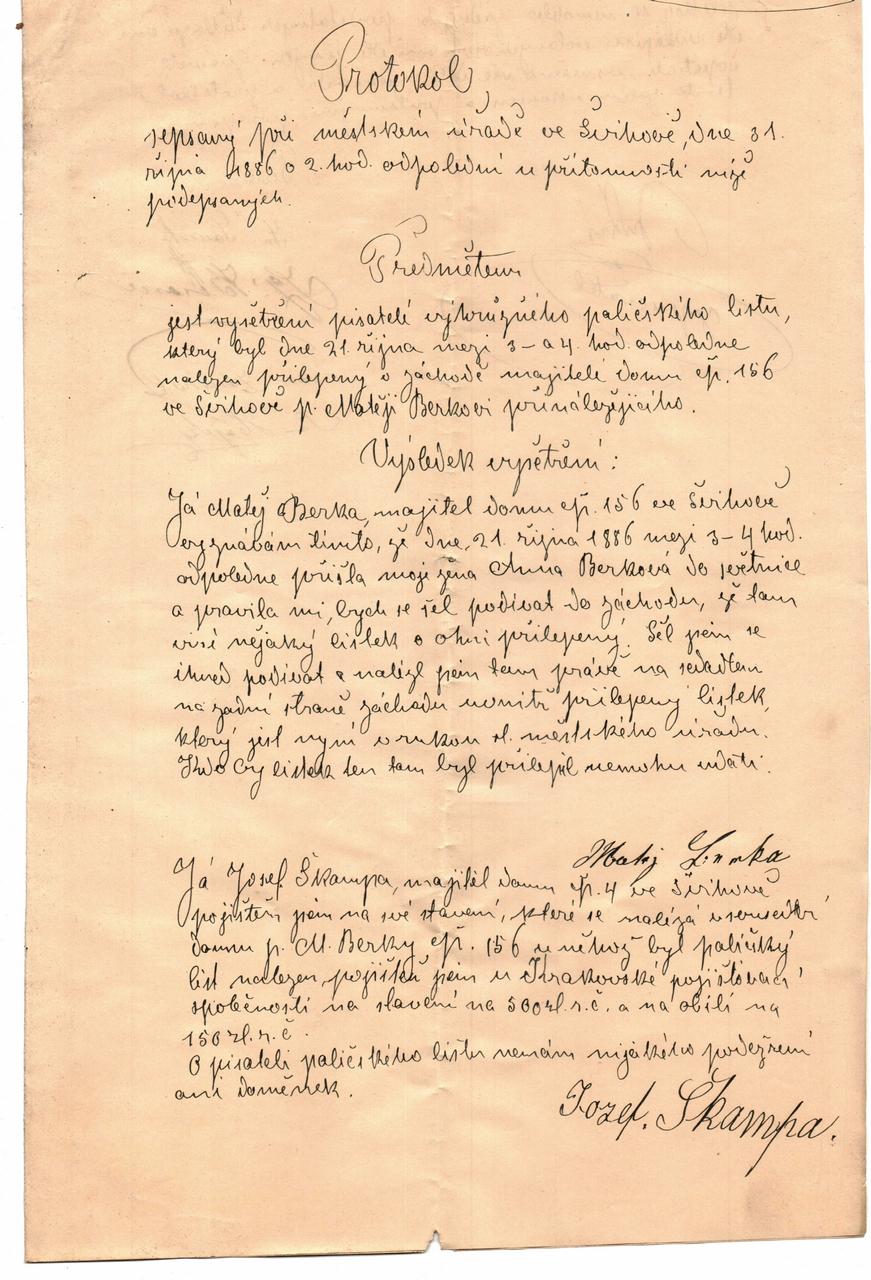 Protokol
sepsaný při městském úřadě ve Švihově, dne 31.
října 1886 o 2. hod. odpolední u přítomnosti níže
podepsaných.
Předmětem
jest vyšetření pisatele výhrůzného paličského listu,
který byl dne 21. října mezi 3-a 4. hod. odpoledne
nalezen přilepený v záchodě majiteli domu čp. 156
ve Švihově p. Matěji Berkovi přináležejícího.
Výsledek vyšetření:
Já Matěj Berka, majitel domu čp. 156 ve Švihově
vyznávám tímto, že dne 21. října 1886 mezi 3-4 hod.
odpoledne přišla moje žena Anna Berková do světnice
a pravila mi, bych se šel podívat do záchodu, že tam
visí nějaký lístek o ohni přilepený. Šel jsem se
ihned podívat a nalezl jsem tam právě na sedadlem
na zadní straně záchodu uvnitř přilepený lístek,
který jest nyní v rukou sl. městského úřadu.
Kdo by lístek ten tam byl přilepil nemohu udati.
Matěj Berka
Já Josef Škampa, majitel domu čp. 4 ve Švihově
pojištěn jsem na své stavení, které se nalézá v sousedství
domu p. M. Berky čp. 156 u něhož byl paličský
list nalezen, pojištěn jsem u Krakovské pojišťovací
společnosti na stavení na 500 zl. r. č. a na obilí na
150 zl. r. č.
O pisateli paličského listu nemám nijakého podezření
ani domněnek.
Jozef. Škampa.